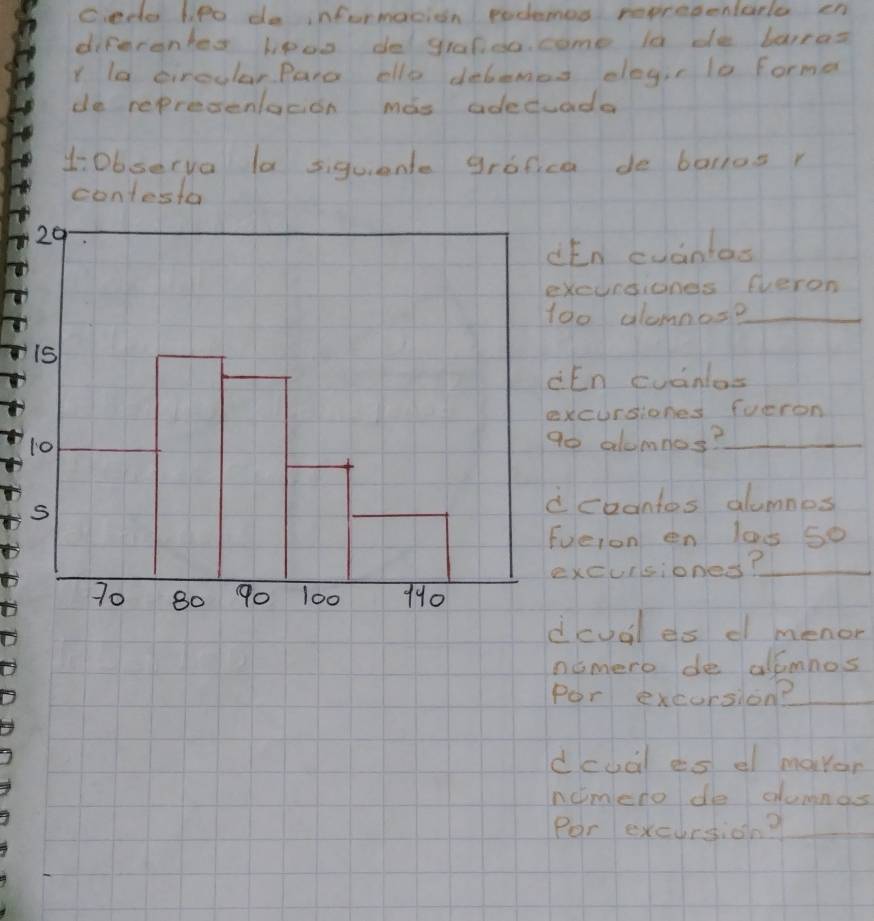 cierto tipo de información podemos representarla en
diferentes tipos de grafica. como la de barras
Y la circular. Para ello debemos elegir la forma
de representación más adecuada
1: Observa la siguiente gráfica de barras Y
contesta
20
15
10
5
70 80 90 100 140
¿En cuántas
excursiones fueron
100 alumnos?
¿En cuántos
excursiones fueron
90 alumnos?
¿cuantos alumnos
fueron en las 50
excursiones?
¿cuál es el menor
número de alumnos
Por excursión?
¿cuál es el mayor
número de alumnos
Por excursión?